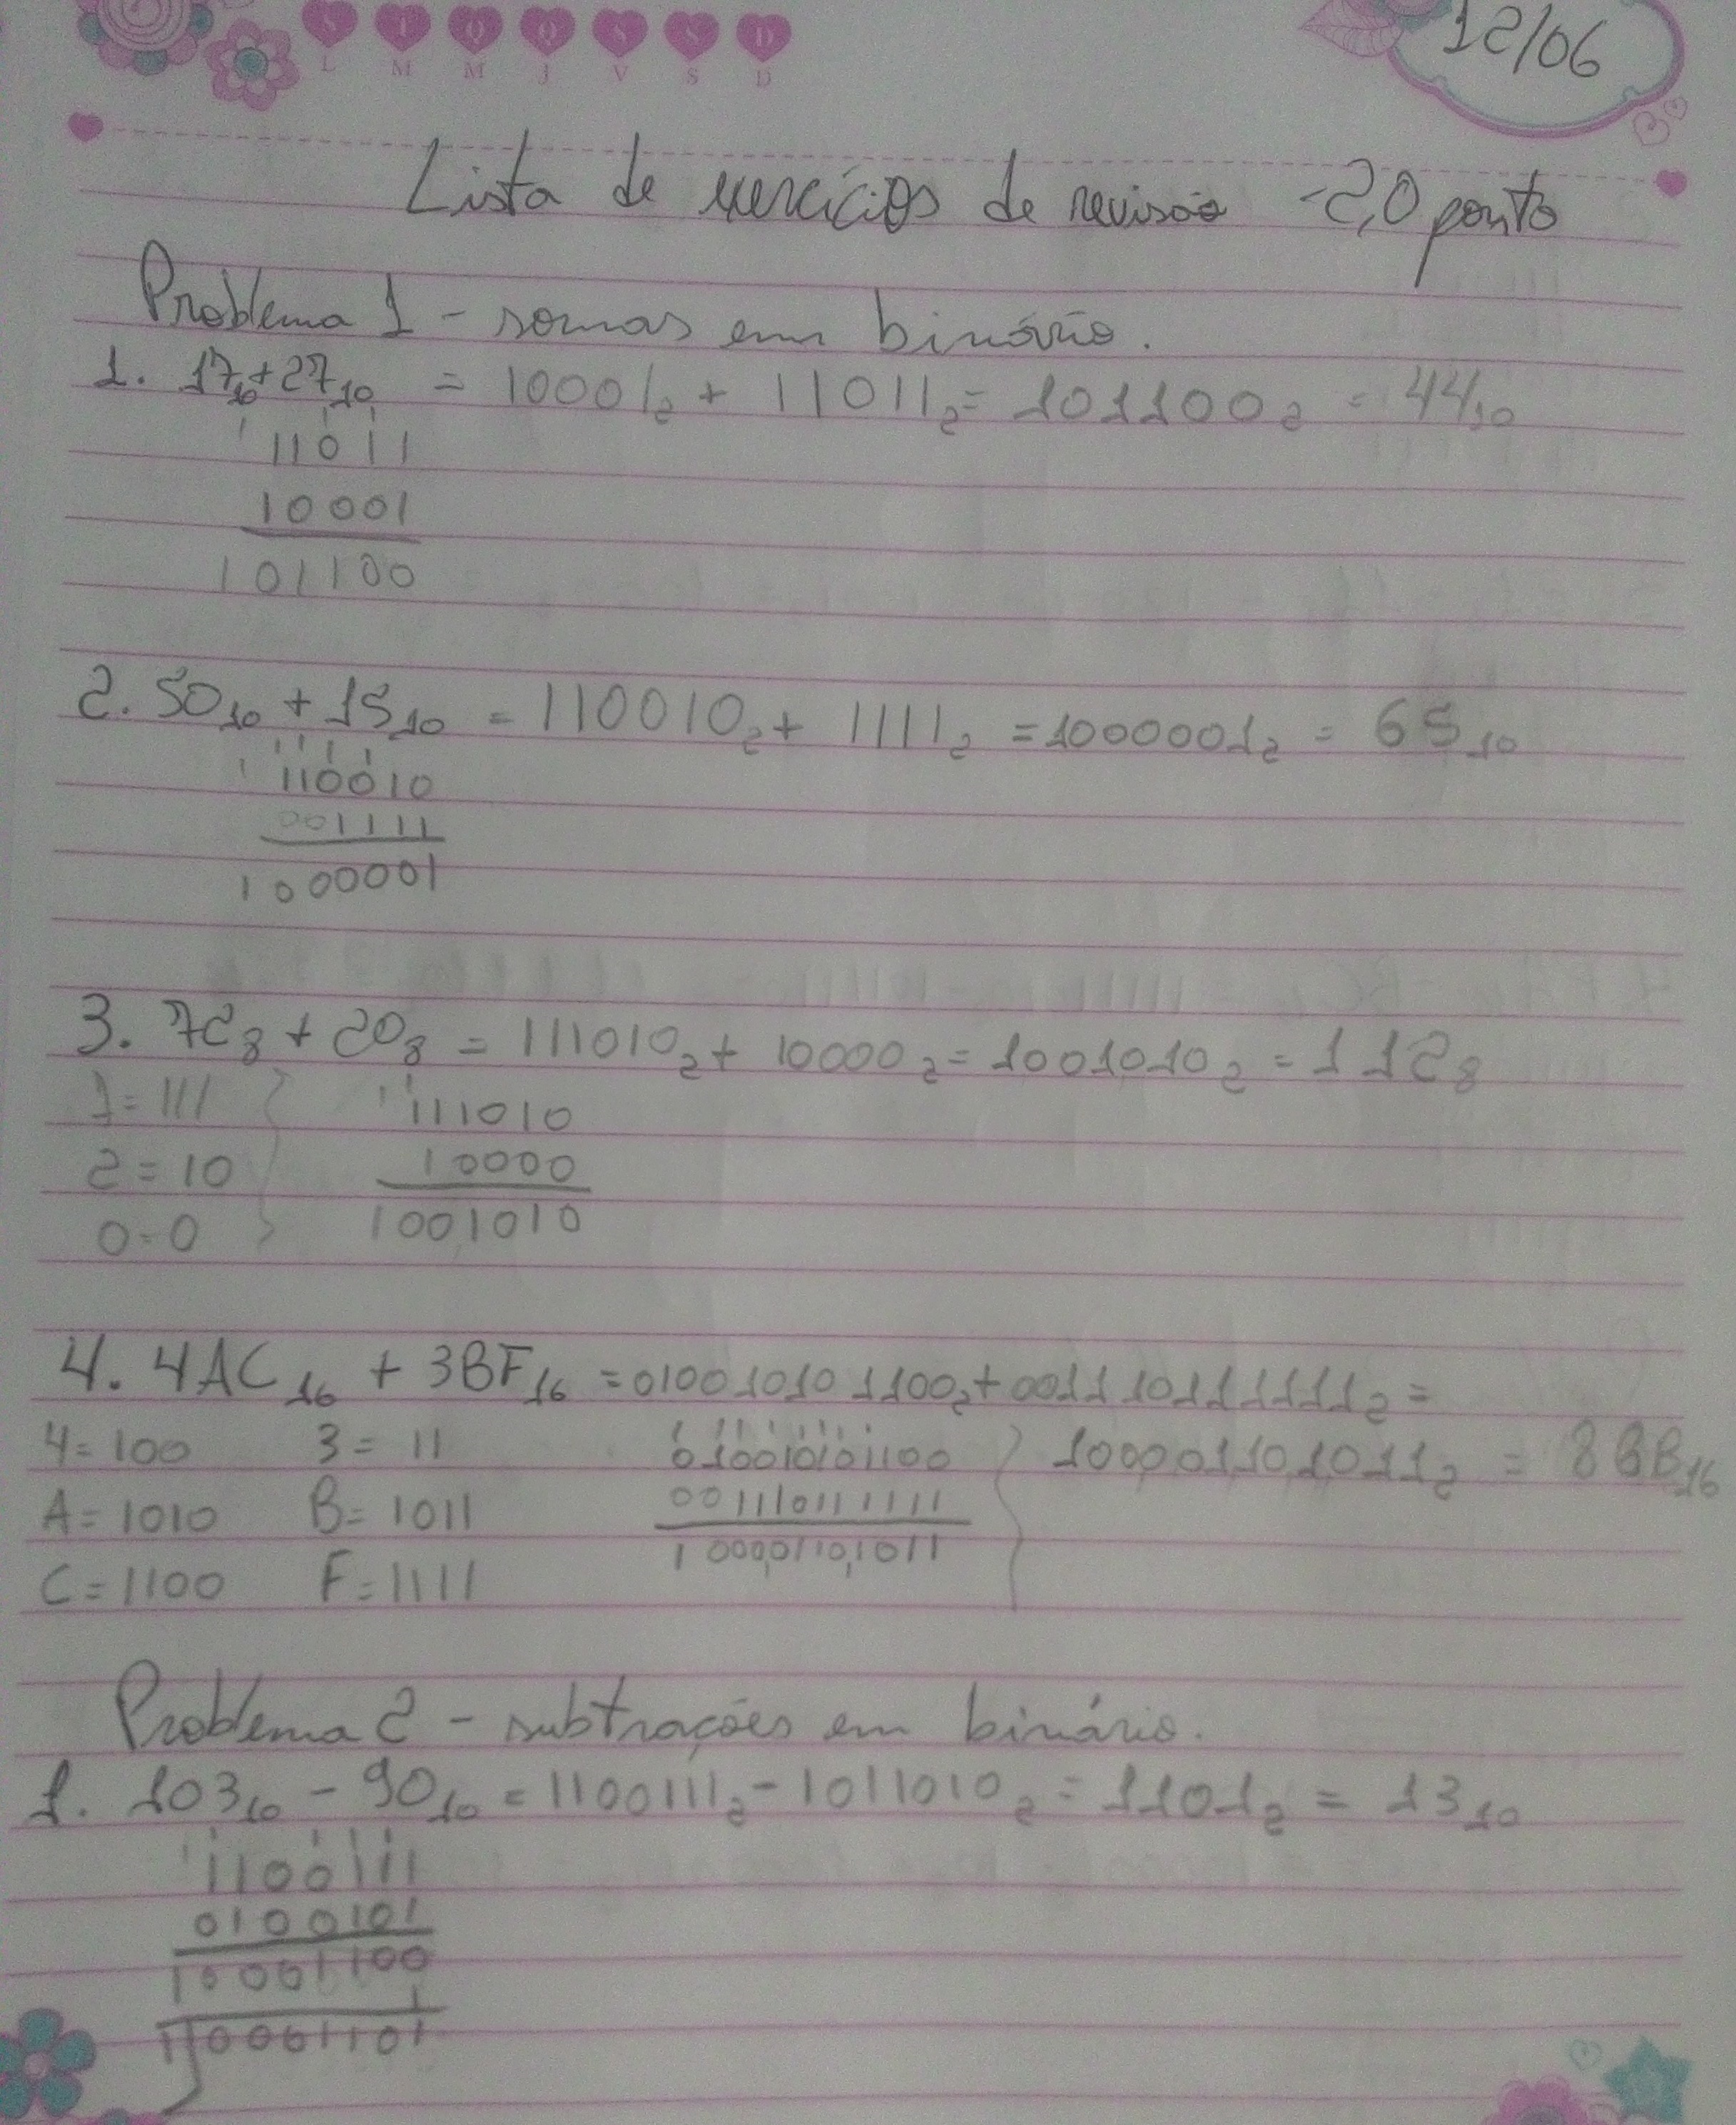 S T Q Q S S D
L M M J V S D
12/06
Lista de exercícios de revisão - 2,0 ponto
Problema 1 - somas em binário.
1. 17₁₀ + 27₁₀ = 10001₂ + 11011₂ = 101100₂ = 44₁₀
11011
10001
101100
2. 50₁₀ + 15₁₀ = 110010₂ + 1111₂ = 1000001₂ = 65₁₀
110010
001111
1000001
3. 72₈ + 20₈ = 111010₂ + 10000₂ = 1001010₂ = 112₈
7 = 111 111010
2 = 10 10000
0 = 0 1001010
4. 4AC₁₆ + 3BF₁₆ = 010010101100₂ + 001110111111₂ =
4 = 100 3 = 11 010010101100 100001101011₂ = 86B₁₆
A = 1010 B = 1011 001110111111
C = 1100 F = 1111 100001101011
Problema 2 - subtrações em binário.
1. 103₁₀ - 90₁₀ = 1100111₂ - 1011010₂ = 1101₂ = 13₁₀
1100111
0100101
10001100
1
10001101